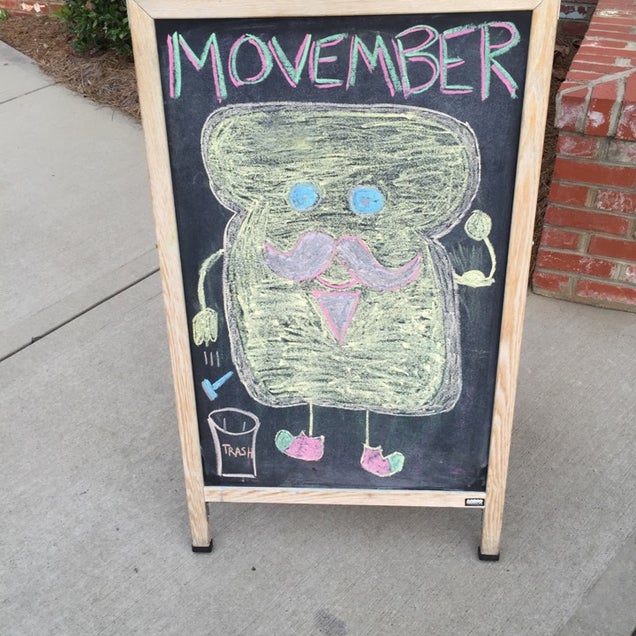 MOVEMBER
TRASH